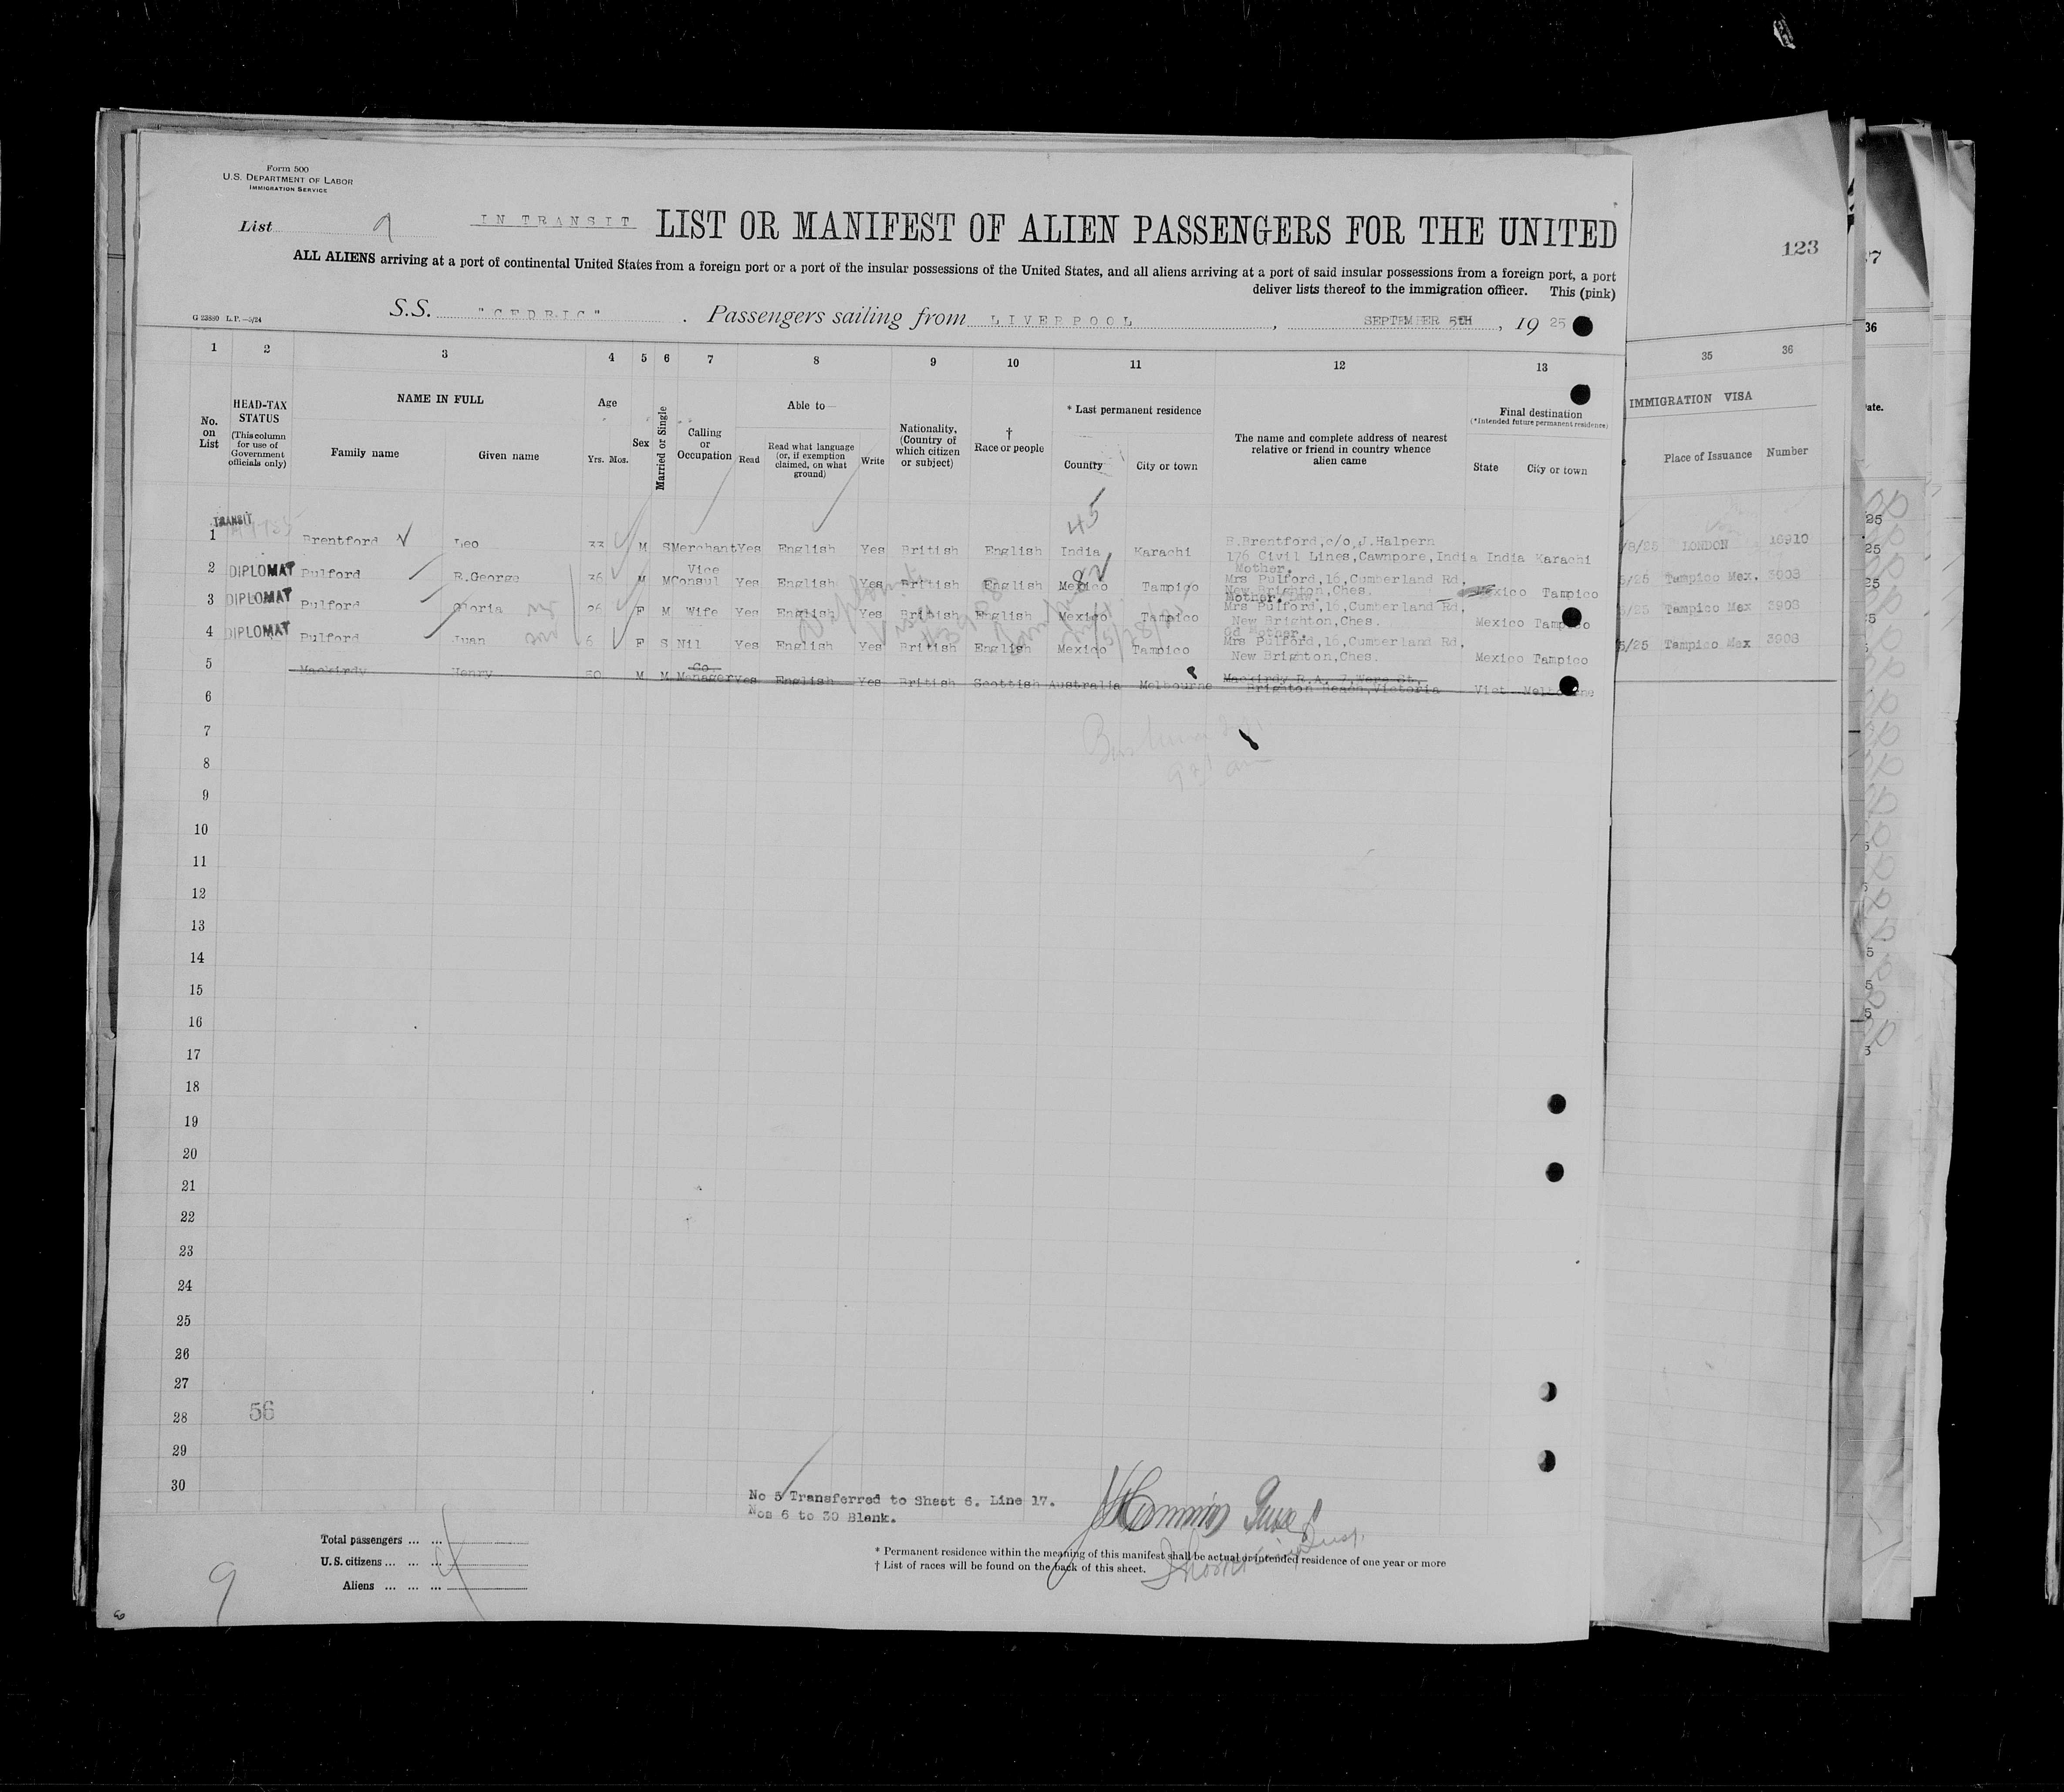 Form 500
U.S. DEPARTMENT OF LABOR
IMMIGRATION SERVICE
List 9 IN TRANSIT LIST OR MANIFEST OF ALIEN PASSENGERS FOR THE UNITED
123
ALL ALIENS arriving at a port of continental United States from a foreign port or a port of the insular possessions of the United States, and all aliens arriving at a port of said insular possessions from a foreign port, a port
deliver lists thereof to the immigration officer. This (pink)
G 23880 L.P.—5/24
S.S. "CEDRIC" . Passengers sailing from LIVERPOOL , SEPTEMBER 5TH , 19 25
1 2 3 4 5 6 7 8 9 10 11 12 13 35 36
No. on List
HEAD-TAX STATUS (This column for use of Government officials only)
NAME IN FULL
Family name Given name
Age
Yrs. Mos.
Sex
Married or Single
Calling or Occupation
Able to—
Read
Read what language (or, if exemption claimed, on what ground)
Write
Nationality, (Country of which citizen or subject)
† Race or people
* Last permanent residence
Country City or town
The name and complete address of nearest relative or friend in country whence alien came
Final destination
(*Intended future permanent residence)
State City or town
IMMIGRATION VISA
Place of Issuance Number
45
TRANSIT
1 Brentford Leo 33 M S Merchant Yes English Yes British English India Karachi B.Brentford,c/o,J.Halpern 176 Civil Lines,Cawnpore,India India Karachi /8/25 LONDON 16910
2 DIPLOMAT Pulford R.George 36 M M Vice Consul Yes English Yes British English Mexico Tampico Mother. Mrs Pulford,16,Cumberland Rd, New Brighton,Ches. Mexico Tampico 5/25 Tampico Mex. 3908
3 DIPLOMAT Pulford Gloria 26 F M Wife Yes English Yes British English Mexico Tampico Mother. Law. Mrs Pulford,16,Cumberland Rd, New Brighton,Ches. Mexico Tampico 5/25 Tampico Mex 3908
4 DIPLOMAT Pulford Juan 6 F S Nil Yes English Yes British English Mexico Tampico Gd Mother. Mrs Pulford,16,Cumberland Rd, New Brighton,Ches. Mexico Tampico 5/25 Tampico Mex 3908
5 Mackirdy Henry 50 M M Co. Manager Yes English Yes British Scottish Australia Melbourne Mackirdy R.A. 7,Were St, Brighton Beach,Victoria Vict. Melbourne
6
7
8
9
10
11
12
13
14
15
16
17
18
19
20
21
22
23
24
25
26
27
28 56
29
30
No 5 Transferred to Sheet 6. Line 17.
Nos 6 to 30 Blank.
Total passengers ... ...
U.S. citizens ... ... ...
Aliens ... ... ...
4
* Permanent residence within the meaning of this manifest shall be actual or intended residence of one year or more
† List of races will be found on the back of this sheet.
9